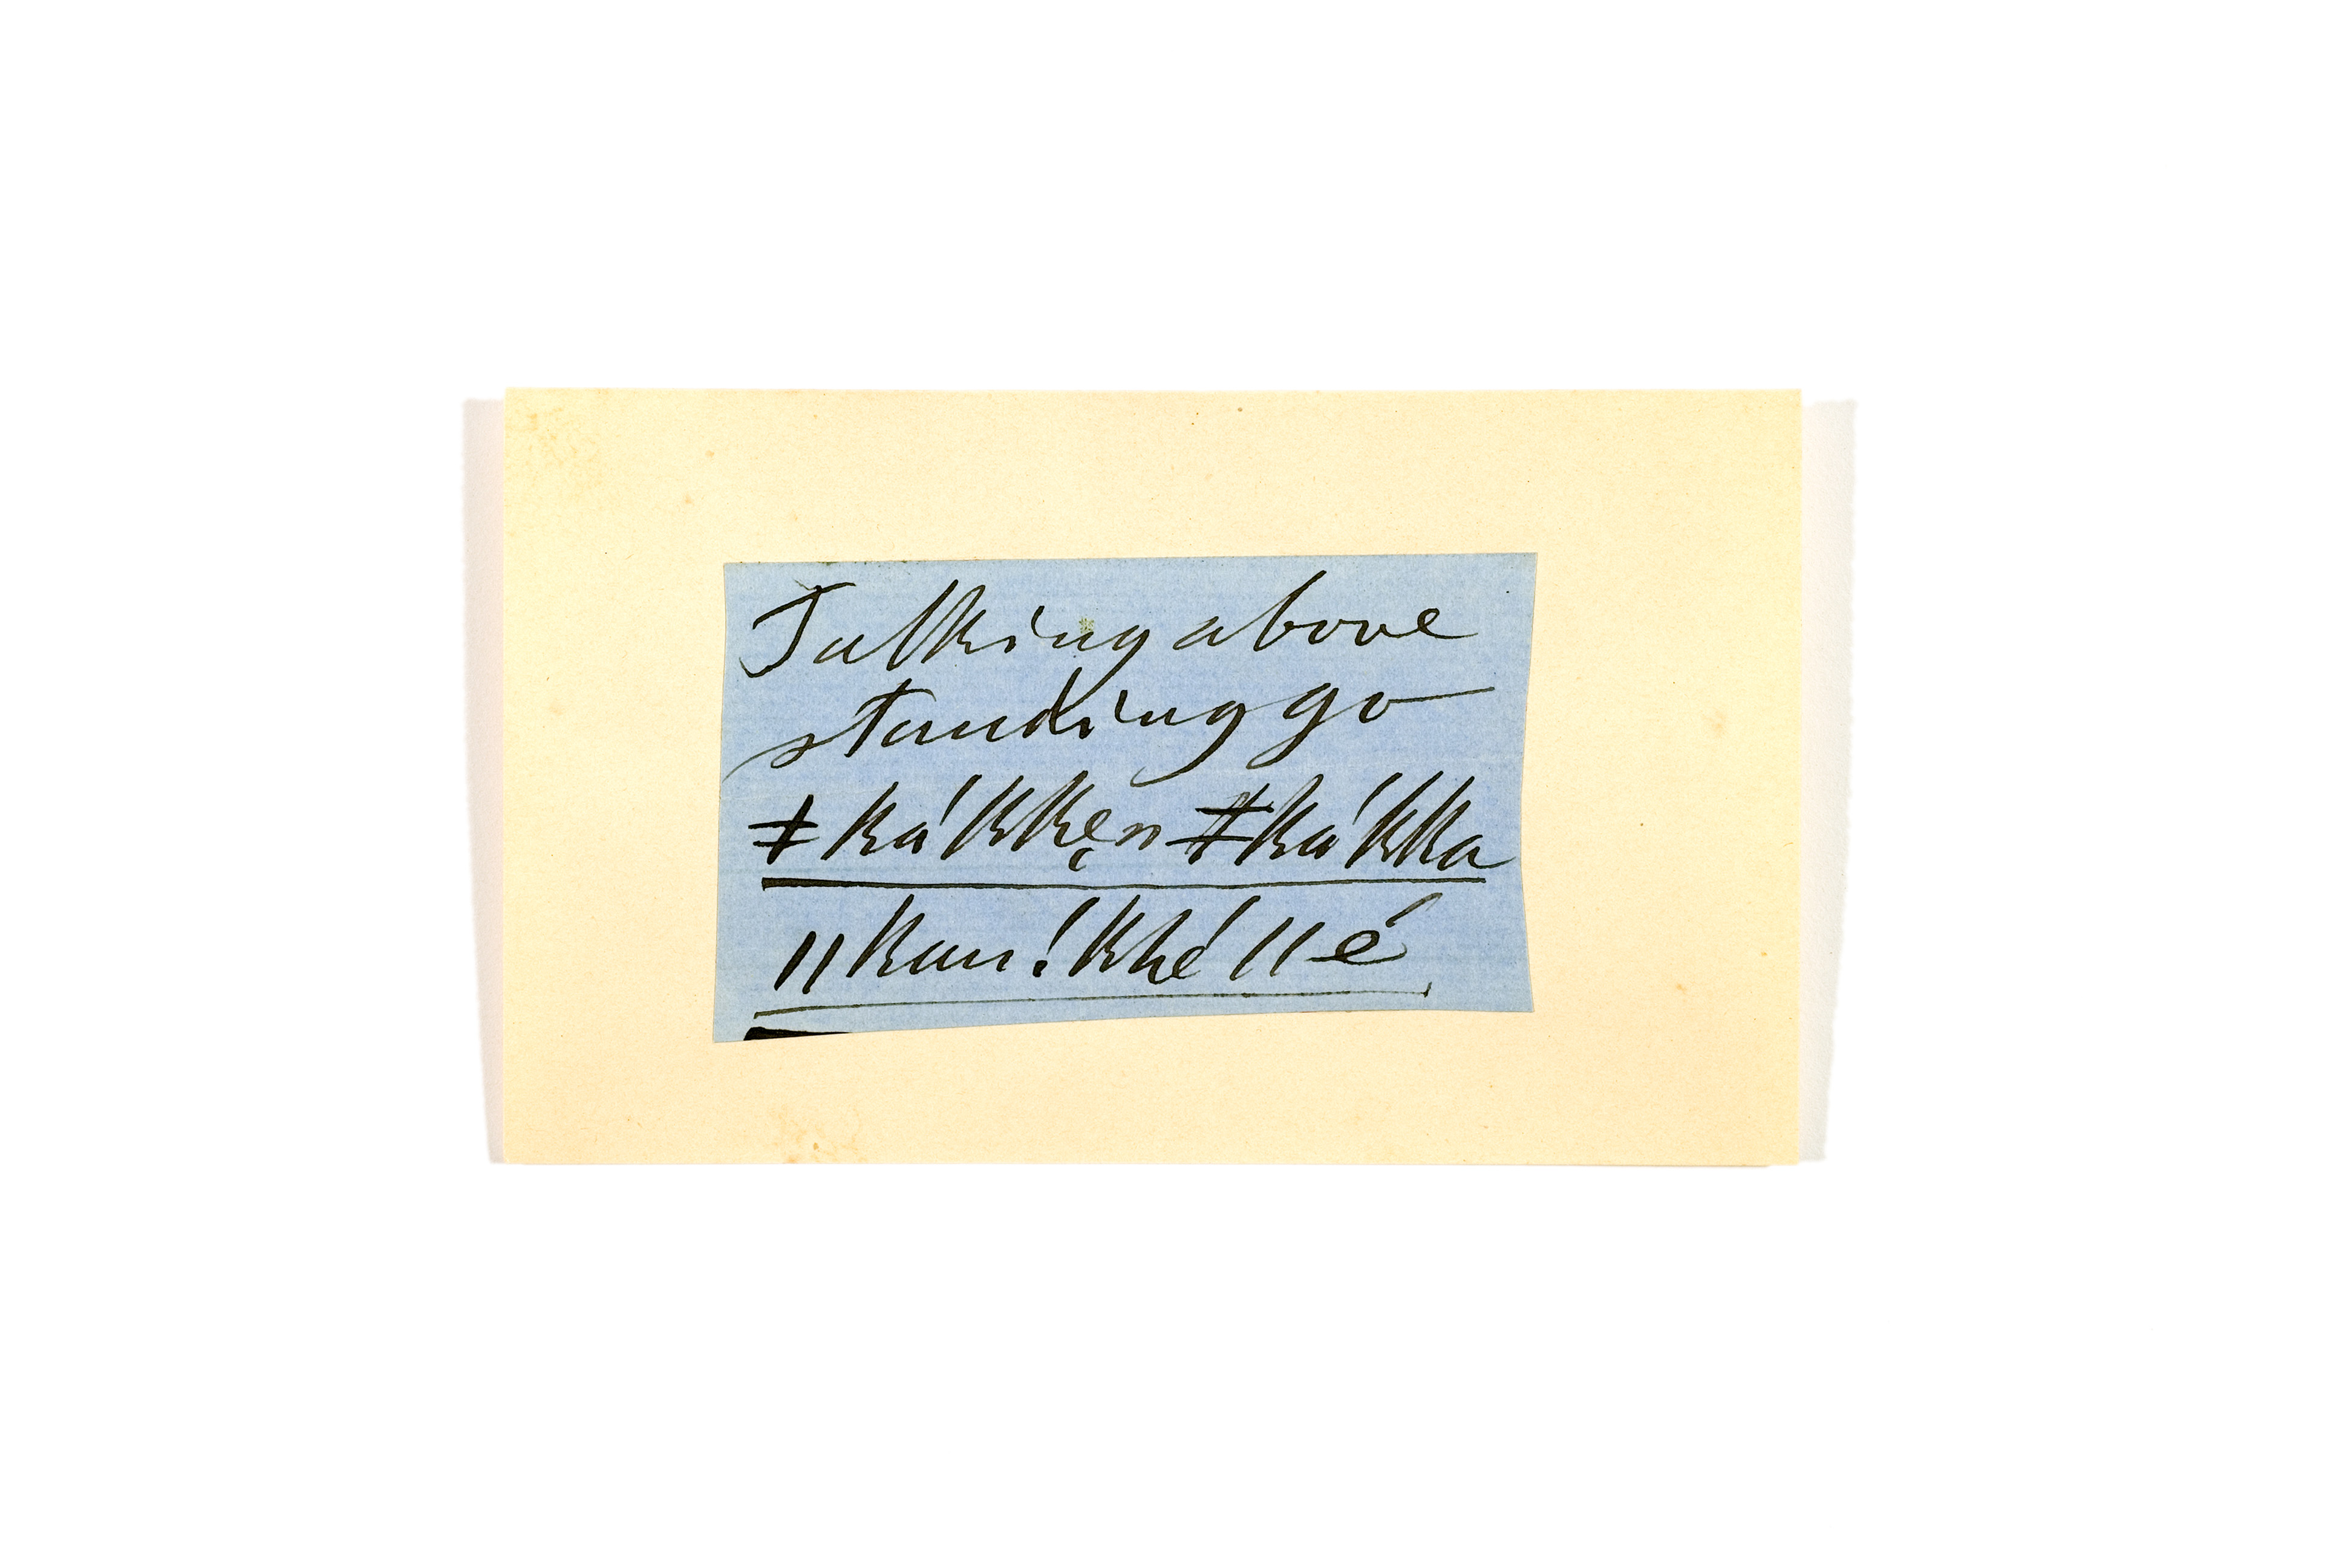 Talking above
standing go
ǂkákkęn ǂkákka
ǁkan ! khé ǁé